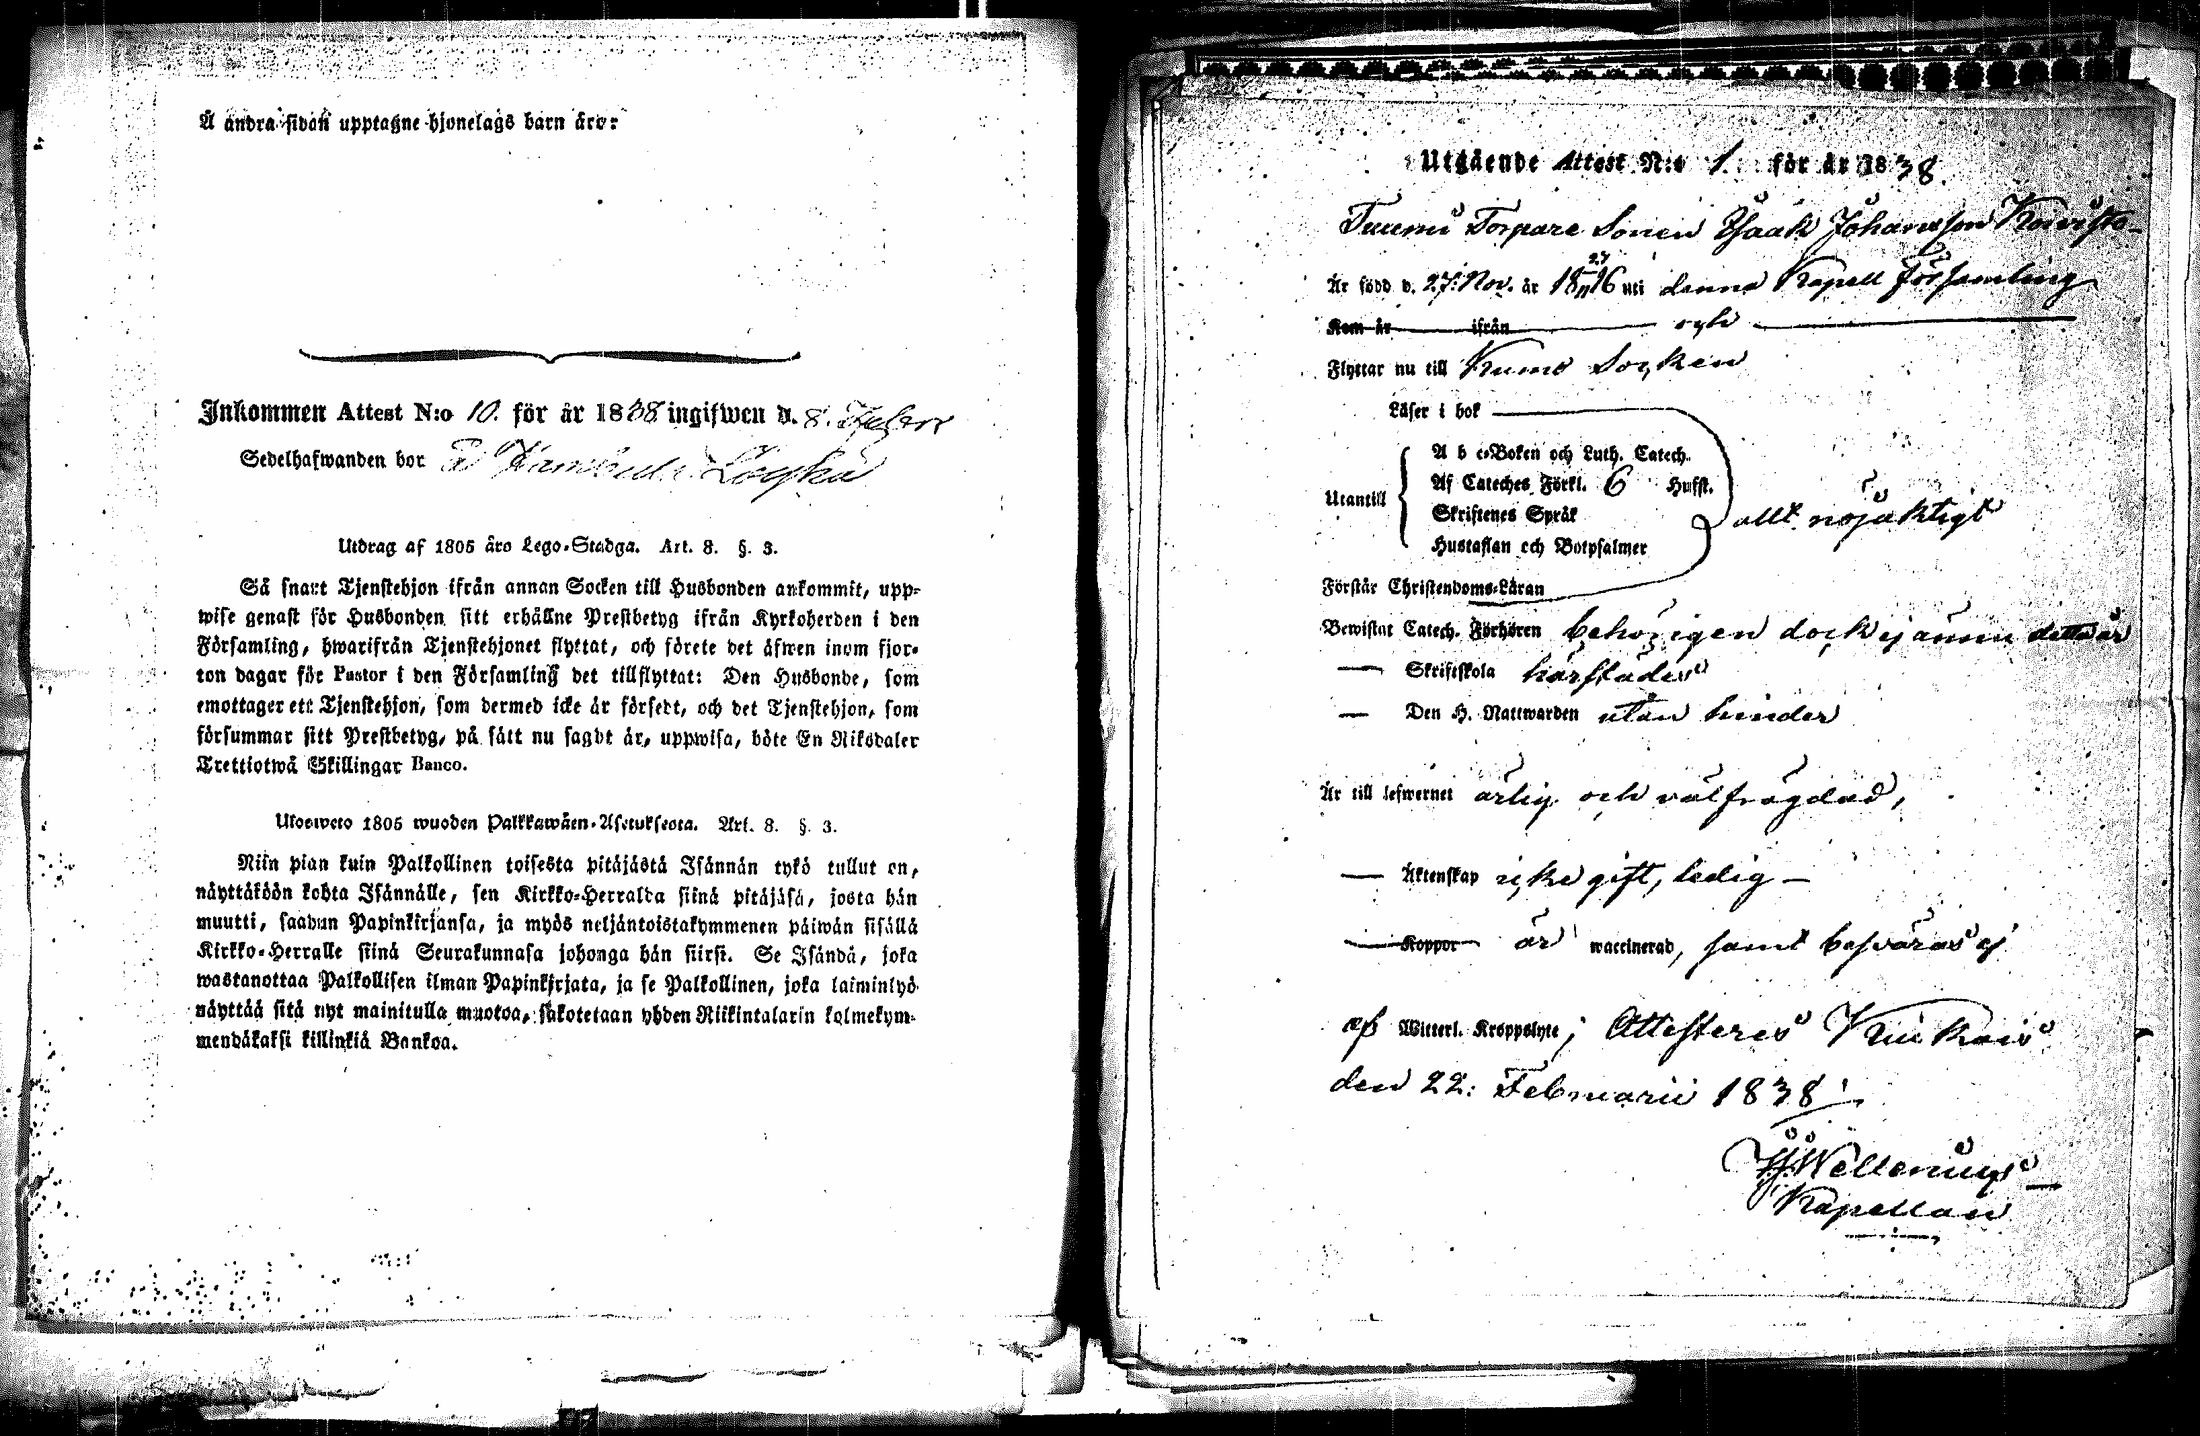 Å andra sidan upptagne hjonelags barn äro:
Inkommen Attest N:o 10. för år 1838 ingifwen d. 8.
Sedelhafwanden bor
Utdrag af 1805 åro Lego-Stadga. Art. 8. §. 3.
Så snart Tjenstehjon ifrån annan Socken till Husbonden ankommit, upp-
wise genast för Husbonden sitt erhållne Prestbetyg ifrån Kyrkoherden i den
Församling, hwarifrån Tjenstehjonet flyttat, och förete det äfwen inom fjor-
ton dagar för Pastor i den Församling det tillflyttat: Den Husbonde, som
emottager ett Tjenstehjon, som dermed icke är försedt, och det Tjenstehjon, som
försummar sitt Prestbetyg, på sätt nu sagdt är, uppwisa, böte En Riksdaler
Trettiotwå Skillingar Banco.
Utosweto 1805 wuoden Palkkawäen-Asetuksesta. Art. 8. §. 3.
Niin pian kuin Palkollinen toisesta pitäjästä Isännän tykö tullut on,
näyttäköön kohta Isännälle, sen Kirkko-Herralda siinä pitäjäsä, josta hän
muutti, saadun Papinkirjansa, ja myös neljäntoistakymmenen päiwän sisällä
Kirkko-Herralle siinä Seurakunnasa johonga hän siirsi. Se Isändä, joka
wastanottaa Palkollisen ilman Papinkirjata, ja se Palkollinen, joka laiminlyö
näyttää sitä nyt mainitulla muotoa, sakotetaan yhden Riikintalarin kolmekym-
mendäkaksi killinkiä Bankoa.
Utgående Attest N:o 1. för år 1838.
Tuumi Torpare Sonen Isaak Johansson Koivisto
Är född d. 27. Nov. år 1816 uti denna Kapell Församling
Kom år ifrån och
Flyttar nu till Kumo Socken
Läser i bok
A b c-Boken och Luth. Catech.
Utantill Af Cateches Förkl. 6 Hufst.
Skriftenes Språk allt nöjaktigt
Hustaflan och Botpsalmer
Förstår Christendoms-Läran
Bewistat Catech. Förhören behörigen dock ej ännu detta år
— Skriftskola härstädes
— Den H. Nattwarden utan hinder
Är till lefwernet ärlig och välfrägdad,
— Äktenskap icke gift, ledig —
Koppor är waccinerad, samt besväras ej
af Witterl. Kroppslyte; Attesteras Kiukais
den 22: Februarii 1838
Wellenius
Kapellan